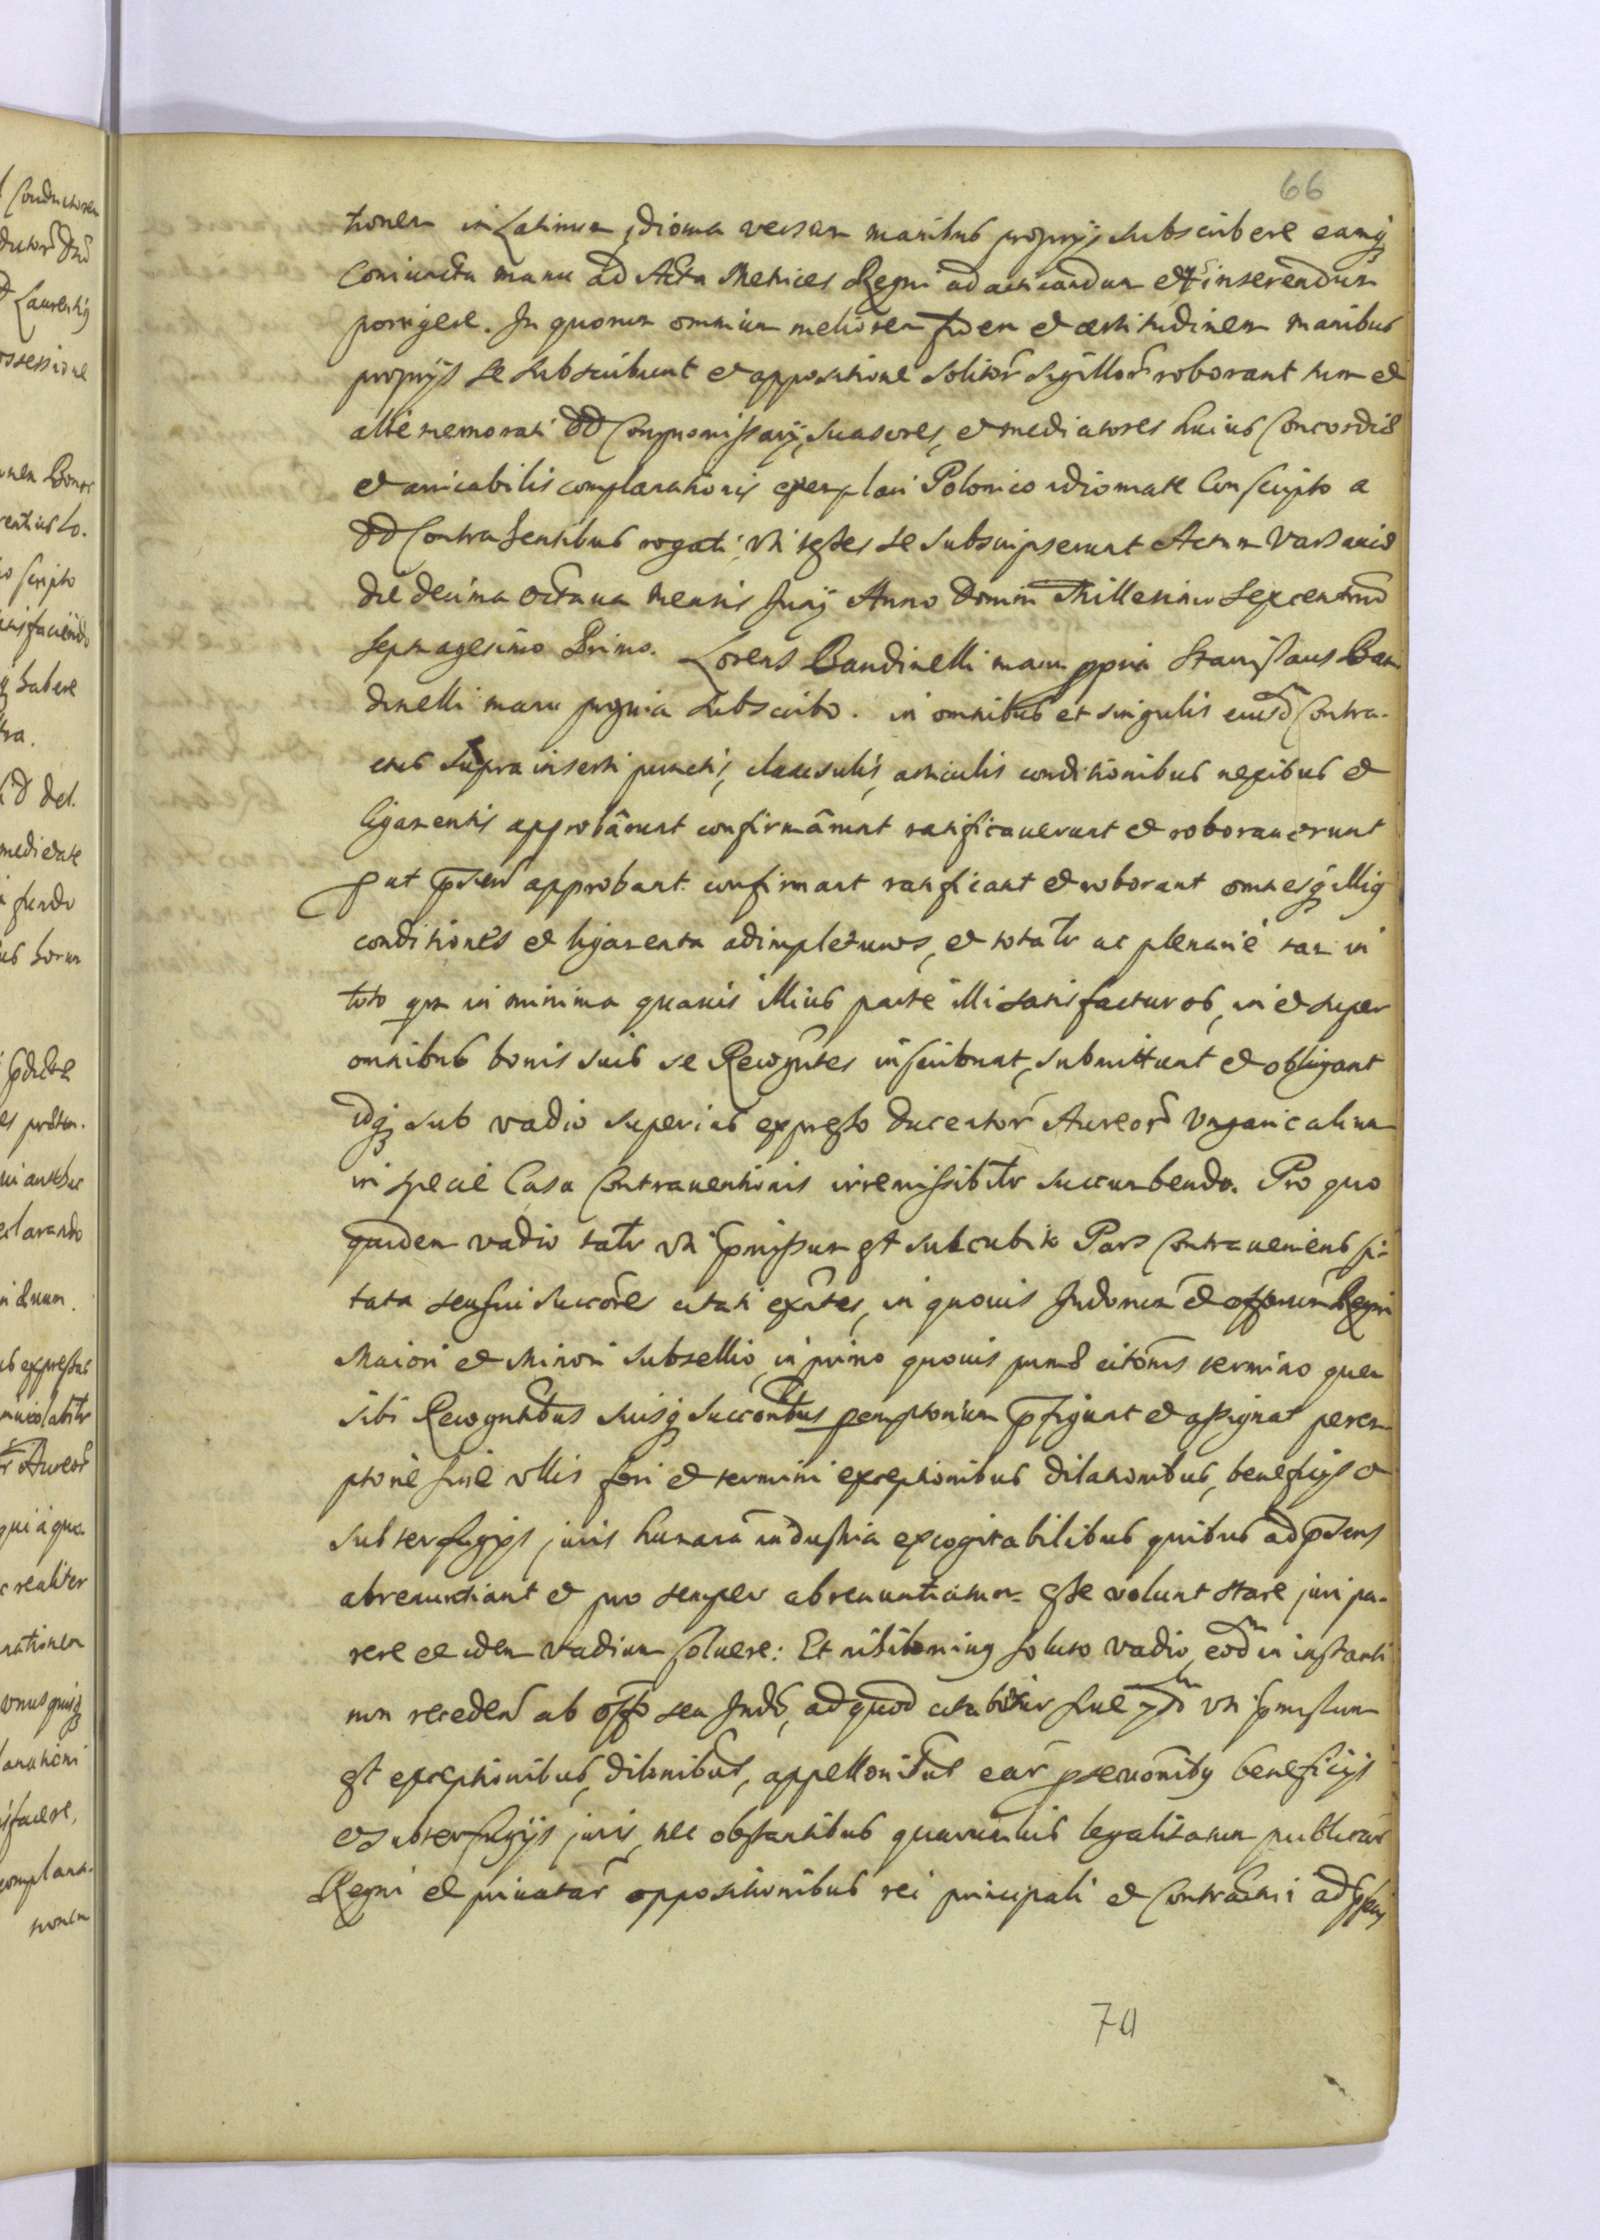 66
tionem in Latinum idioma versam manibus proprijs subscribere eamq
coniuncta manu ad Acta Metrices Regni ad acticandum et inserendum
porrigere. In quorum omnium meliorem fidem et certitudinem manibus
proprijs se subscribunt et appositione solitor sigillor roborant tum et
alte memorati DD Compromissarij, suasores, et mediatores huius Concordiæ
et amicabilis complanationis exemplari Polonico idiomate conscripto a
DD Contrahentibus rogati, uti testes se subscripserunt Actum Varsaviæ
die decima octava mensis Junij Anno Domini Millesimo Sexcentmo
septuagesimo Primo. Lorens Bandinelli manu ppria Stanislaus Ban
dinelli manu propria subscribo. in omnibus et singulis eiusd Contra-
ctus supra inserti punctis, clausulis, articulis conditionibus nexibus et
ligamentis approbârunt confirmârunt ratificaverunt et roboraverunt
put pnter approbant confirmant ratificant et roborant omnesq illius
conditiones et ligamenta adimpleturos, et totalr ac plenarie tam in
toto qm in minima quavis illius parte illi satisfacturos, in et super
omnibus bonis suis se Recogntes inscribunt, submittunt et obligant
idq sub vadio superius expresso ducentor Aureor Vngaricalium
in specie Casu Contraventionis irremissibilr succumbendo. Pro quo
quidem vadio talr uti pmissum est succubito Pars contraveniens ci-
tata seu sui succores citati exntes, in quovis Judiorum et offiorum Regni
Maiori et Minori subsellio, in primo quovis primæ citonis termino quem
sibi Recogntibus suisq succoribus pemptorium pfigunt et assignat perem
ptorie sine ullis fori et termini exceptionibus dilationibus, beneficijs et
subterfugijs juris humana industria excogitabilibus quibus ad psens
abrenuntiant et pro semper abrenuntiatum esse volunt stare juri pa-
rere et idem vadium solvere: Et nihilominus soluto vadio, eod in instanti
non recedend ab offo seu Judo, ad quod citabitur sine uti pmissum
est exceptionibus, dilonibus, appellonibus ear psecutionibus beneficijs
et subterfugijs juris, nec obstantibus quarumvis legalitatum publicar
Regni et privatar oppositionibus rei principali et Contractui
70